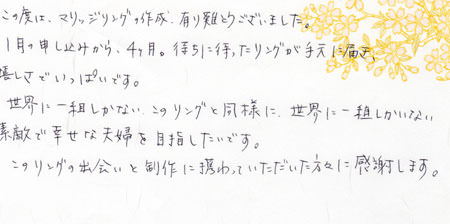 この度は、マリッジリングの作成、有り難とうございました。
1月の申し込みから、4ヶ月。待ちに待ったリングが手元に届き、
嬉しさでいっぱいです。
世界に一組しかない、このリングと同様に、世界に一組しかいない
素敵で幸せな夫婦を目指したいです。
このリングの出会いと制作に携わっていただいた方々に感謝します。